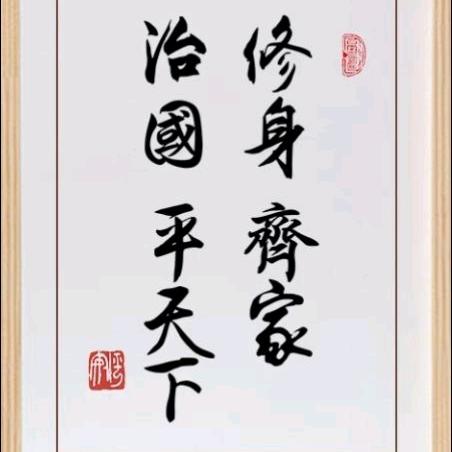 修身 齊家
治國 平天下